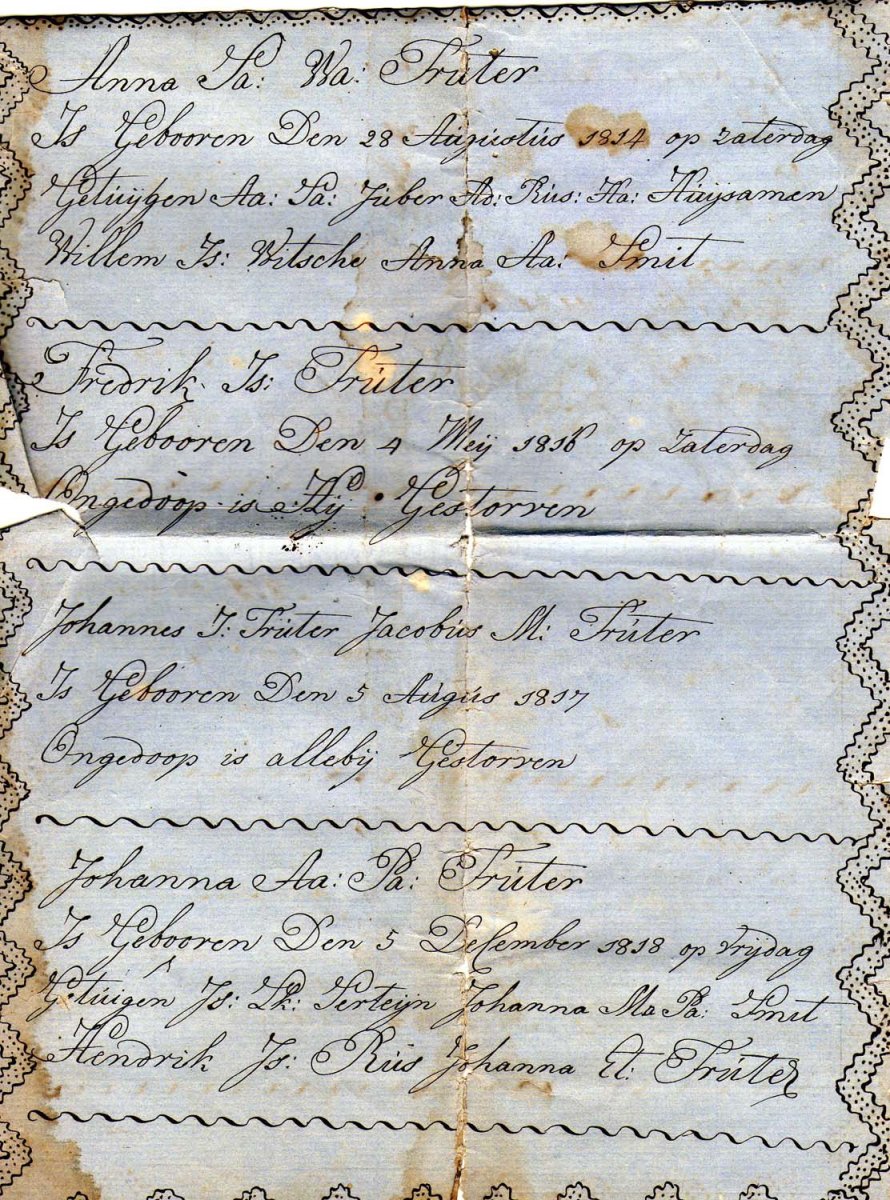 Anna Sa: Wa: Trúter
Is Gebooren Den 28 Augústús 1814 op Zaterdag
Getuygen Aa: Sa: Júber Ad: Rús: Ha: Húysamen
Willem Js: Witsche Anna Aa: Smit
Fredrik Js: Trúter
Is Gebooren Den 4 Meij 1816 op Zaterdag
Ongedoop is Hij Gestorven
Johannes J: Trúter Jacobús M: Trúter
Is Gebooren Den 5 Augús 1817
Ongedoop is allebij Gestorven
Johanna Aa: Pa: Trúter
Is Gebooren Den 5 December 1818 op Vrijdag
Getúigen Js: Lk: Serteijn Johanna Ma Pa: Smit
Hendrik Js: Rús Johanna Et: Trúter